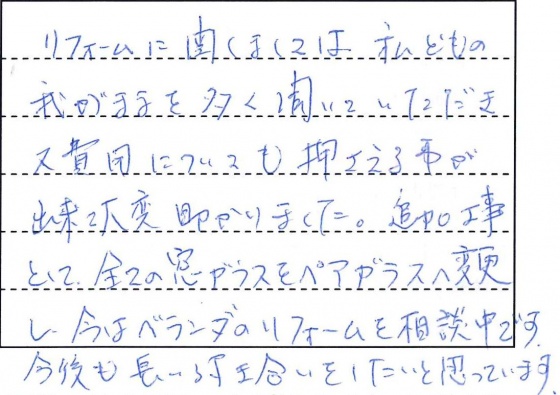 リフォームに関しましては私どもの
我がままを多く聞いていただき
又費用についても押さえる事が
出来て大変助かりました。追加工事
として、全ての窓ガラスをペアガラスへ変更
し、今はベランダのリフォームを相談中です。
今後も長いお付き合いをしたいと思っています。